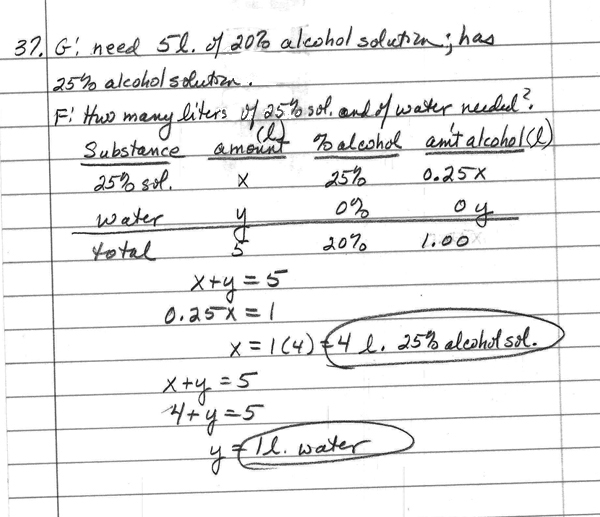 37. G: need 5l. of 20% alcohol solution; has
25% alcohol solution.
F: How many liters of 25% sol. and of water needed?
(l)
Substance amount % alcohol am't alcohol (l)
25% sol. x 25% 0.25x
water y 0% 0y
total 5 20% 1.00
x+y=5
0.25x=1
x=1(4)=4 l. 25% alcohol sol.
x+y=5
4+y=5
y=1l. water